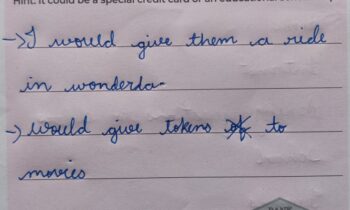 Hint: It could be a special credit card or an educational
→ I would give them a ride
in wonderla
→ would give tokens of to
movies